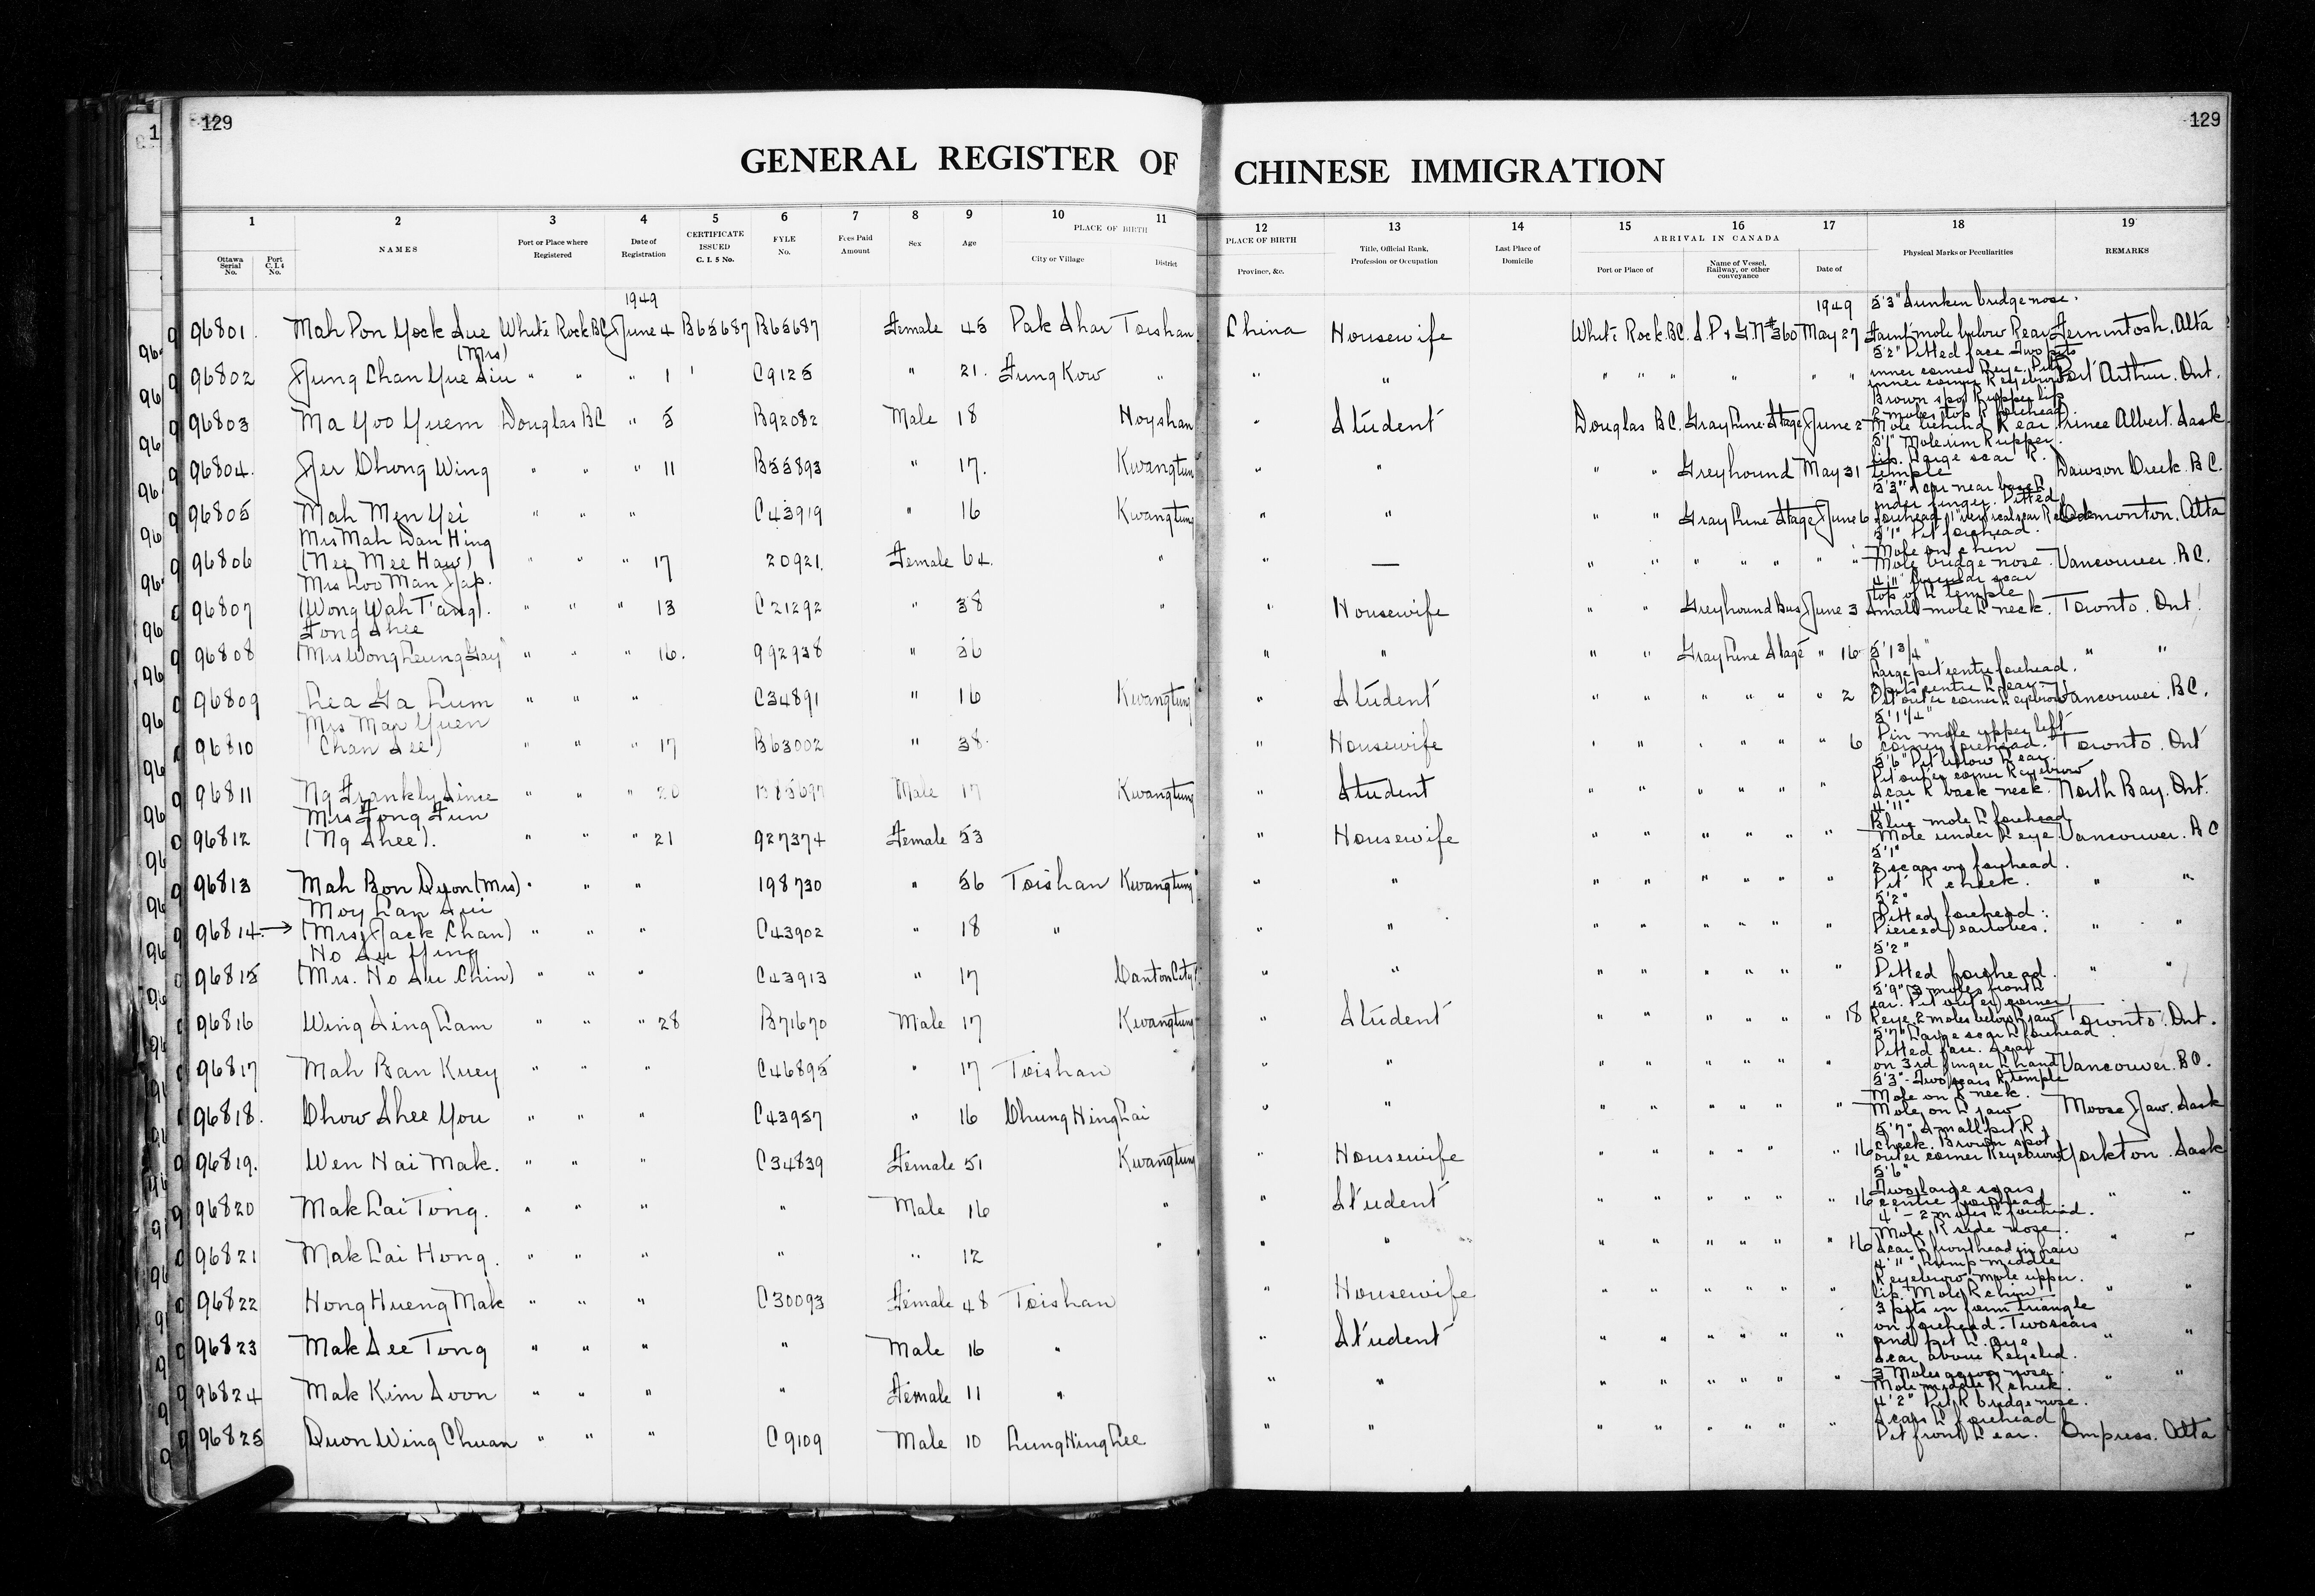 129
129
GENERAL REGISTER OF CHINESE IMMIGRATION
1 2 3 4 5 6 7 8 9 10 11 12 13 14 15 16 17 18 19
Ottawa Serial No. Port C.I.4 No. NAMES Port or Place where Registered Date of Registration CERTIFICATE ISSUED C. I. 5 No. FYLE No. Fees Paid Amount Sex Age PLACE OF BIRTH City or Village District PLACE OF BIRTH Province, &c. Title, Official Rank, Profession or Occupation Last Place of Domicile ARRIVAL IN CANADA Port or Place of Name of Vessel, Railway, or other conveyance Date of Physical Marks or Peculiarities REMARKS
1949 1949 5'3" Sunken bridge nose.
96801. Mah Pon Yock Sue (Mrs) White Rock BC June 4 B65687 B65687 Female 45 Pak Shar Toishan China Housewife White Rock. B.C. May 27 Faint mole below R ear Alta
96802 Jung Chan Yue Siu " " " 1 C9125 " 21. Fung Kow " " " " " " " " " 5'2" Pitted face Two pits inner corner Port Arthur. Ont.
96803 Ma Yoo Yuem Douglas BC " 5 B92082 Male 18 Hoyshan " Student Douglas B.C. Gray Line Stage June 2 Brown spot R upper lip 2 moles top R forehead. Mole behind R ear Prince Albert. Sask
96804. Jer Chong Wing " " " 11 B55893 " 17. Kwangtung " " " " Greyhound May 31 5'1" Mole rim R upper lip. Large scar R. temple Dawson Creek. B.C.
96805 Mah Men Yei " " " C43919 " 16 Kwangtung " " " " Gray Line Stage June 6 5'3" Scar near base R index finger. Pitted forehead Edmonton. Alta
96806 Mrs Mah Wan Hing (Nee Mee Haw) " " " 17 20921. Female 64. " " — " " " " " " " 5'1" Pit forehead. Mole on chin Mole bridge nose. Vancouver. B.C.
96807 Mrs Loo Man Jap. (Wong Wah Tang). " " " 13 C21292 " 38 " " Housewife " " Greyhound Bus June 3 scar top of L temple Small mole L neck. Toronto. Ont.
96808 Fong Shee (Mrs Wong Leung Gay) " " " 16. 992938 " 56 " " " " Gray Line Stage " 16 5'1 3/4" " "
96809 Lea Ga Lum " " " C34891 " 16 Kwangtung " Student " " " " " " 2 Large pit centre forehead. Pit outer corner L eyebrow Vancouver. B.C.
96810 Mrs Mar Yuen (Chan See) " " " 17 B63002 " 38. " Housewife " " " " " " 6 5'1¼" Pin mole upper left corner forehead. Toronto. Ont
96811 Ng Frankly Sime " " " 20 B85697 Male 17 Kwangtung " Student " " " " " " 5'6" Pit below L ear. Pit outer corner R eyebrow Scar R back neck. North Bay. Ont.
96812 Mrs Fong Fun (Ng Shee). " " " 21 927374 Female 53 " Housewife " " " " " " 4'11" Blue mole L forehead Mole under L eye Vancouver. B C
96813 Mah Bon Quon (Mrs) " " " 198730 " 56 Toishan Kwangtung " " " " " " " " 5'1" 2 scars on forehead. Pit R cheek. " "
96814. → Moy Lan Sui (Mrs. Jack Chan) " " " C43902 " 18 " " " " " " " " " 5'2" Pitted forehead. Pierced earlobes. " "
96815 Ho Su Ying (Mrs. Ho Su Chin) " " " C43913 " 17 Canton City. " " " " " " " " 5'2" Pitted forehead. " "
96816 Wing Sing Lam " " " 28 B71670 Male 17 Kwangtung " Student " " " " " " 18 5'9" 3 moles front L ear. Pit outer corner R eye 2 moles below L jaw Toronto. Ont.
96817 Mah Ban Kuey " " " C46895 " 17 Toishan " " " " " " " " " 5'7" Large scar L forehead Pitted face. Scar on 3rd finger L hand Vancouver. B.C.
96818. Chow Shee You " " " C43957 " 16 Chung Hing Lai " " " " " " " " 5'3" - Two scars R temple Mole on L neck. Mole on L jaw Moose Jaw. Sask
96819. Wen Hai Mak. " " " C34839 Female 51 Kwangtung " Housewife " " " " " " 16 5'7" Small pit R cheek. Brown spot outer corner R eyebrow Yorkton. Sask
96820 Mak Lai Tong. " " " " Male 16 " " Student " " " " " " 16 5'6" Two large scars centre forehead " "
96821 Mak Lai Hong. " " " " " 12 " " " " " " " " " 16 4' - 2 moles L forehead. Mole R side nose. Scar L front head in hair " "
96822 Hong Hueng Mak " " " C30093 Female 48 Toishan " Housewife " " " " " " 4'11" Lump middle R eyebrow mole upper. lip. Mole R chin " "
96823 Mak See Tong " " " " Male 16 " " Student " " " " " " 3 pits in form triangle on forehead. Two scars and pit L. eye " "
96824 Mak Kim Soon " " " " Female 11 " " " " " " " " " Scar above R eyelid. 3 Moles across nose. Mole middle R cheek. " "
96825 Quon Wing Chuan " " " C9109 Male 10 Lung Hing Lee " " " " " " " " 4'2" Pit R bridge nose. Scars L forehead Pit front L ear. Empress. Alta